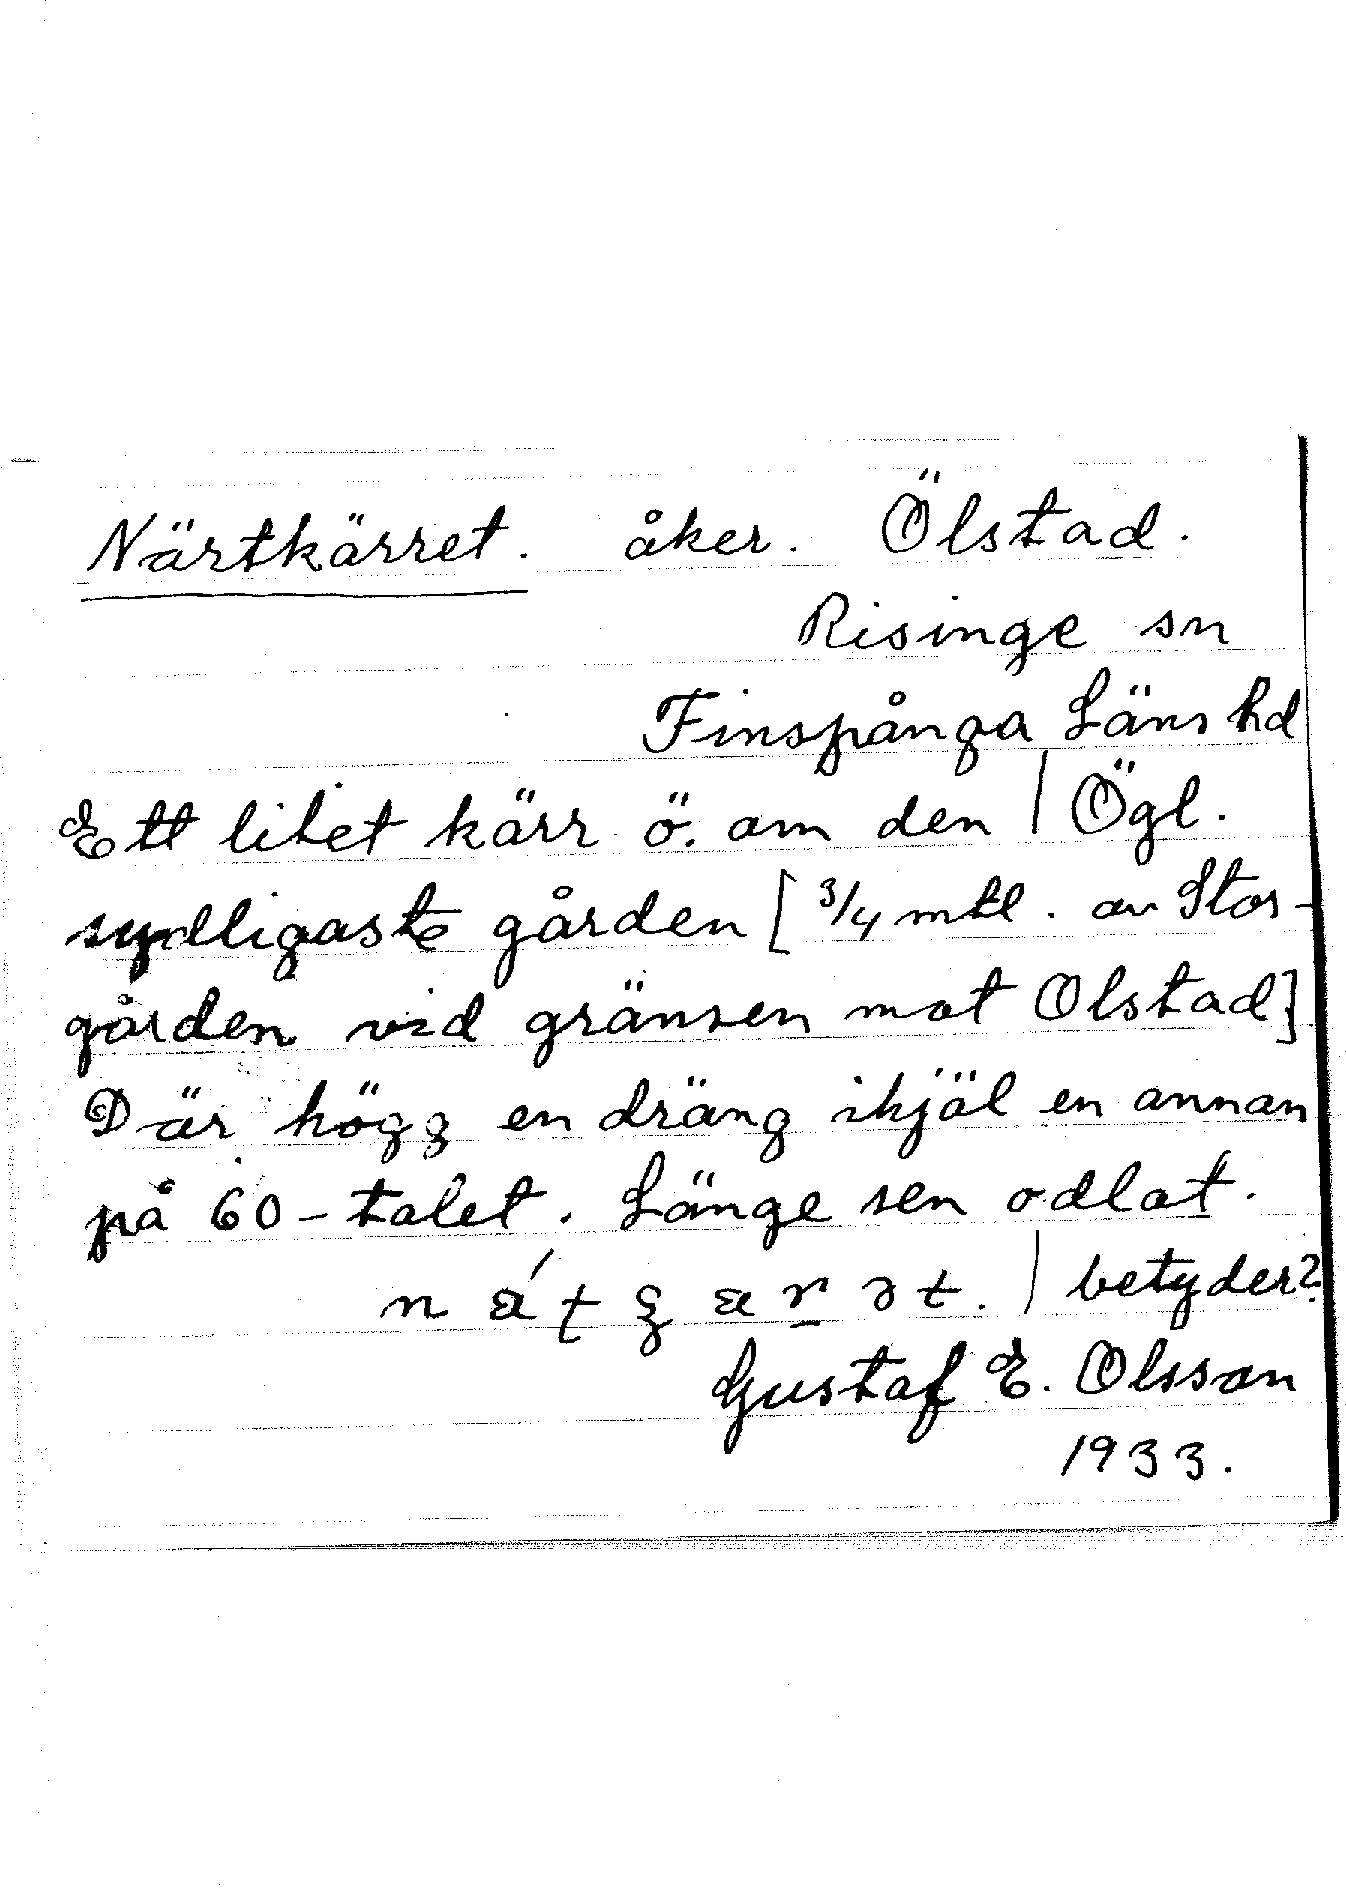 Närtkärret. åker. Ölstad.
Risinge sn
Finspånga Läns hd
Ett litet kärr ö. om den | Ögl.
sydligaste gården [ 3/4 mtl. av Stor-
gården vid gränsen mot Olstad]
Där högg en dräng ihjäl en annan
på 60-talet. Länge sen odlat.
| betyder?
Gustaf E. Olsson
1933.